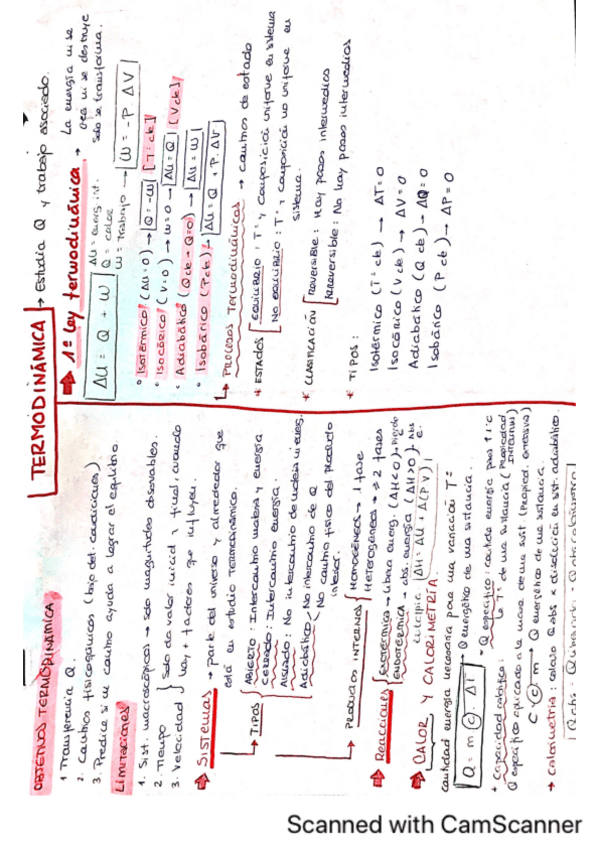 TERMODINÁMICA → Estudia Q y trabajo asociado.
OBJETIVOS TERMODINÁMICA
1 Transferencia Q.
2. Cambios fisicoquímicos (bajo det. condiciones)
3. Predice si un cambio ayuda a lograr el equilibrio.
LIMITACIONES
1. Sist. macroscópicos → solo magnitudes observables.
2. Tiempo
3. Velocidad
Solo da valor inicial y final, cuando
hay + factores que influyen.
⇒ SISTEMAS → parte del universo y alrededor que
está en estudio termodinámico.
→ TIPOS
ABIERTO: Intercambio materia y energía
CERRADO: Intercambio energía.
Aislado: No intercambio de materia ni energ.
Adiabático: No intercambio de Q
(No cambio físico del Producto
interior.
→ PROCESOS INTERNOS
HOMOGÉNEOS → 1 fase
Heterogéneos → ≥ 2 fases
⇒ Reacciones
EXOTÉRMICO → libera energ. (ΔH<0)
ENDOTÉRMICA → abs. energía (ΔH>0)
entalpía ΔH = ΔU + Δ(PV)
⇒ CALOR Y CALORIMETRÍA.
cantidad energía necesaria para una variación Tª
Q = m · c · ΔT
→ Q energético de una sustancia.
→ Q específico: cantidad energía para ↑ 1ºC
la Tª de una sustancia (Propiedad
intensiva)
+ Capacidad calorífica:
Q específico aplicado a la masa de una sust. (Propied. extensiva)
C = c · m → Q energético de una sustancia.
→ Calorimetría: calcula Q abs x disolución en sist. adiabático.
⇒ 1ª ley termodinámica → La energía ni se
crea ni se destruye
solo se transforma.
ΔU = Q + W
ΔU = energ. int.
Q = calor
W = trabajo → W = -P · ΔV
• Isotérmico (ΔU = 0) → Q = -W [Tª: cte]
• ISOCÓRICO (V = 0) → W = 0 → ΔU = Q (V cte)
• Adiabático (Q cte → Q = 0) → ΔU = W
• Isobárico (P cte) → ΔU = Q + P. ΔV
→ PROCESOS TERMODINÁMICOS → cambios de estado
* ESTADOS
EQUILIBRIO: Tª y composición uniforme en sistema
No equilibrio: Tª y composición no uniforme en
sistema.
* CLASIFICACIÓN
Reversible: Hay pasos intermedios
Irreversible: No hay pasos intermedios
* TIPOS:
Isotérmico (Tª cte) → ΔT = 0
Isocórico (V cte) → ΔV = 0
Adiabático (Q cte) → ΔQ = 0
Isobárico (P cte) → ΔP = 0
Scanned with CamScanner